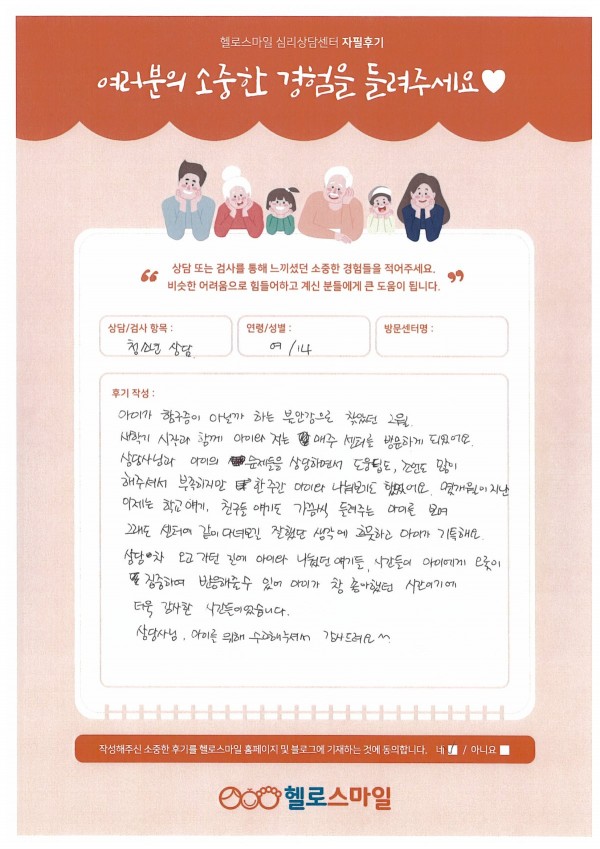 헬로스마일 심리상담센터 자필후기
여러분의 소중한 경험을 들려주세요♥
“ 상담 또는 검사를 통해 느끼셨던 소중한 경험들을 적어주세요. ”
비슷한 어려움으로 힘들어하고 계신 분들에게 큰 도움이 됩니다.
상담/검사 항목 : 청소년 상담
연령/성별 : 여 / 14
방문센터명 :
후기 작성 :
아이가 함구증이 아닐까 하는 불안감으로 찾았던 2월.
새학기 시작과 함께 아이와 저는 매주 센터를 방문하게 되었어요.
상담사님과 아이의 문제들을 상담하면서 도움말도, 조언도 많이
해주셔서 부족하지만 한 주간 아이와 나눠보기도 했었어요. 몇개월이 지난
이제는 학교 얘기, 친구들 얘기도 가끔씩 들려주는 아이를 보며
그래도 센터에 같이 다녀보길 잘했단 생각에 흐뭇하고 아이가 기특해요.
상담차 오고 가던 길에 아이와 나눴던 얘기들, 시간들이 아이에게 오롯이
집중하며 반응해줄 수 있어 아이가 참 좋아했던 시간이기에
더욱 감사한 시간들이었습니다.
상담사님, 아이를 위해 수고해주셔서 감사드려요 ^^
작성해주신 소중한 후기를 헬로스마일 홈페이지 및 블로그에 기재하는 것에 동의합니다. 네 / 아니요
헬로스마일